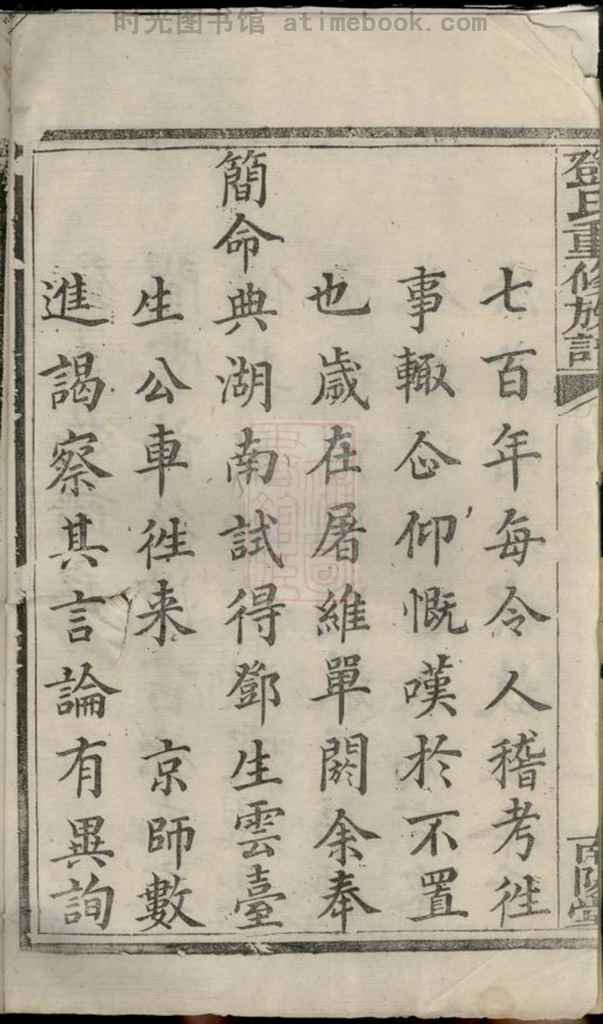 时光图书馆 atimebook.com
鄧氏重修族譜
南陽堂
七百年每令人稽考徃
事輙仚仰慨嘆於不置
也歲在屠維單閼余奉
簡命典湖南試得鄧生雲臺
生公車徃来 京師數
進謁察其言論有異詢